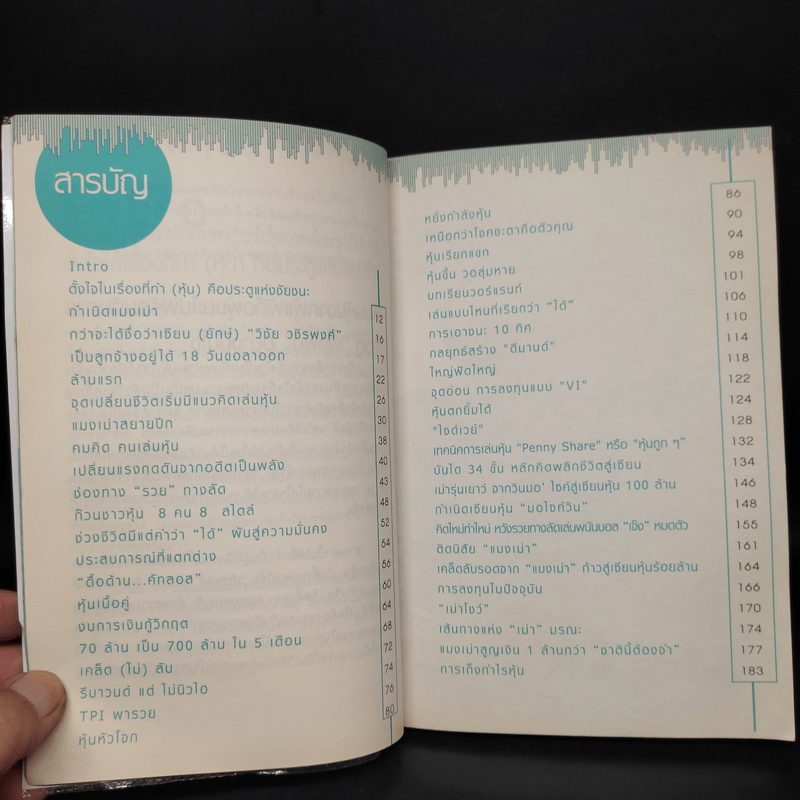 สารบัญ
Intro
ตั้งใจในเรื่องที่ทำ (หุ้น) คือประตูแห่งชัยชนะ
กำเนิดแมงเม่า
กว่าจะได้ชื่อว่าเซียน (ยักษ์) "วิชัย วชิรพงศ์"
เป็นลูกจ้างอยู่ได้ 18 วันขอลาออก
ล้านแรก
จุดเปลี่ยนชีวิตเริ่มมีแนวคิดเล่นหุ้น
แมงเม่าสยายปีก
คมคิด คนเล่นหุ้น
เปลี่ยนแรงกดดันจากอดีตเป็นพลัง
ช่องทาง "รวย" ทางลัด
ก๊วนชาวหุ้น 8 คน 8 สไตล์
ช่วงชีวิตมีแต่คำว่า "ได้" พันสู่ความมั่นคง
ประสบการณ์ที่แตกต่าง
"ดื้อด้าน...คัทลอส"
หุ้นเนื้อคู่
งบการเงินกู้วิกฤต
70 ล้าน เป็น 700 ล้าน ใน 5 เดือน
เคล็ด (ไม่) ลับ
รีบาวนด์ แต่ ไม่นิวไฮ
TPI พารวย
หุ้นหัวโจก
12
16
17
22
26
30
38
40
43
48
52
54
56
60
64
68
72
74
76
80
หนึ่งกำลังหุ้น
เหนือกว่าโชคชะตาคือตัวคุณ
หุ้นเรียกแขก
หุ้นขึ้น วอลุ่มหาย
บทเรียนวอร์แรนท์
เล่นแบบไหนที่เรียกว่า "ได้"
การเอาชนะ 10 ทิศ
กลยุทธ์สร้าง "ดีมานด์"
ใหญ่ฟัดใหญ่
จุดอ่อน การลงทุนแบบ "VI"
หุ้นตกยิ้มได้
"ไซด์เวย์"
เทคนิคการเล่นหุ้น "Penny Share" หรือ "หุ้นถูก ๆ"
บันได 34 ขั้น หลักคิดพลิกชีวิตสู่เซียน
เม่ารุ่นเยาว์ จากวินมอ' ไซค์สู่เซียนหุ้น 100 ล้าน
กำเนิดเซียนหุ้น "มอไซค์วิน"
คิดใหม่ทำใหม่ หวังรวยทางลัดเล่นพนันบอล "เจ๊ง" หมดตัว
ติดนิสัย "แมงเม่า"
เคล็ดลับรอดจาก "แมงเม่า" ก้าวสู่เซียนหุ้นร้อยล้าน
การลงทุนในปัจจุบัน
"เม่าโชว์"
เส้นทางแห่ง "เม่า" มรณะ
แมงเม่าสูญเงิน 1 ล้านกว่า "ชาตินี้ต้องจำ"
การเก็งกำไรหุ้น
86
90
94
98
101
106
110
114
118
122
124
128
132
134
146
148
155
161
164
166
170
174
177
183